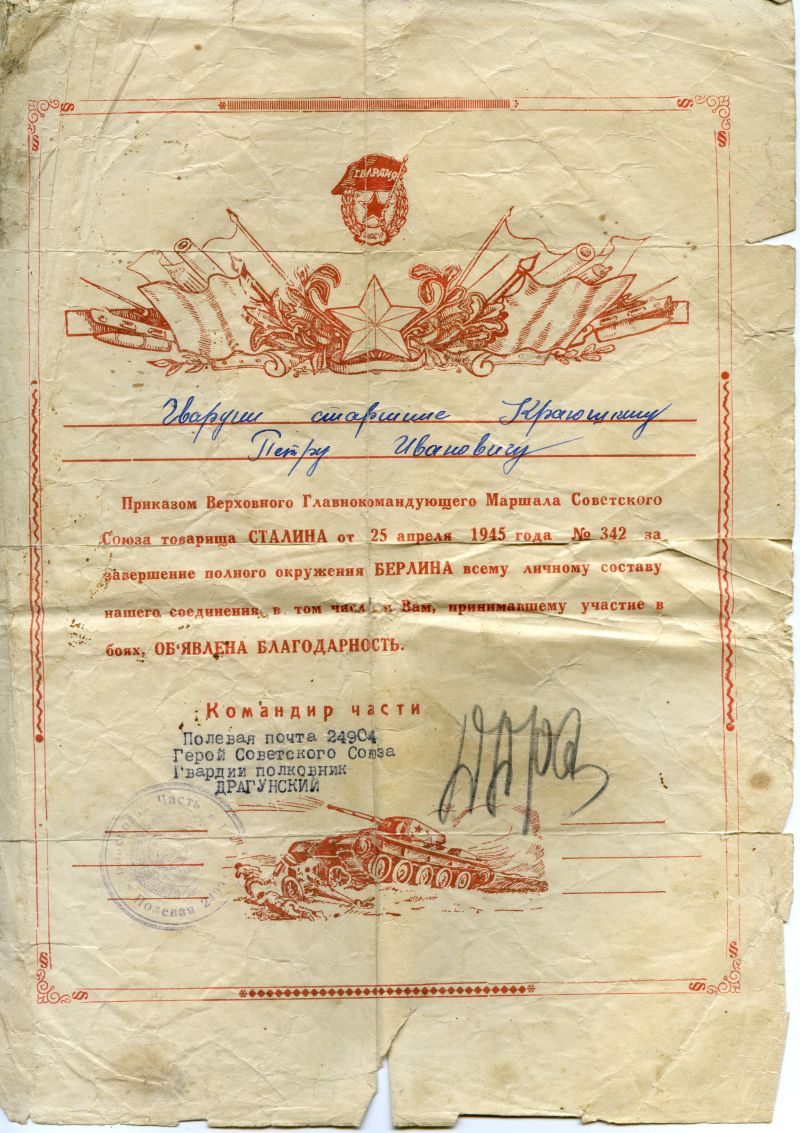 ГВАРДИЯ
Гвардии старшине
Петру Ивановичу
Приказом Верховного Главнокомандующего Маршала Советского
Союза товарища СТАЛИНА от 25 апреля 1945 года № 342 за
завершение полного окружения БЕРЛИНА всему личному составу
нашего соединения, в том числе и Вам, принимавшему участие в
боях, ОБ'ЯВЛЕНА БЛАГОДАРНОСТЬ.
Командир части
Полевая почта 24904
Герой Советского Союза
Гвардии полковник
ДРАГУНСКИЙ
Часть
Полевая